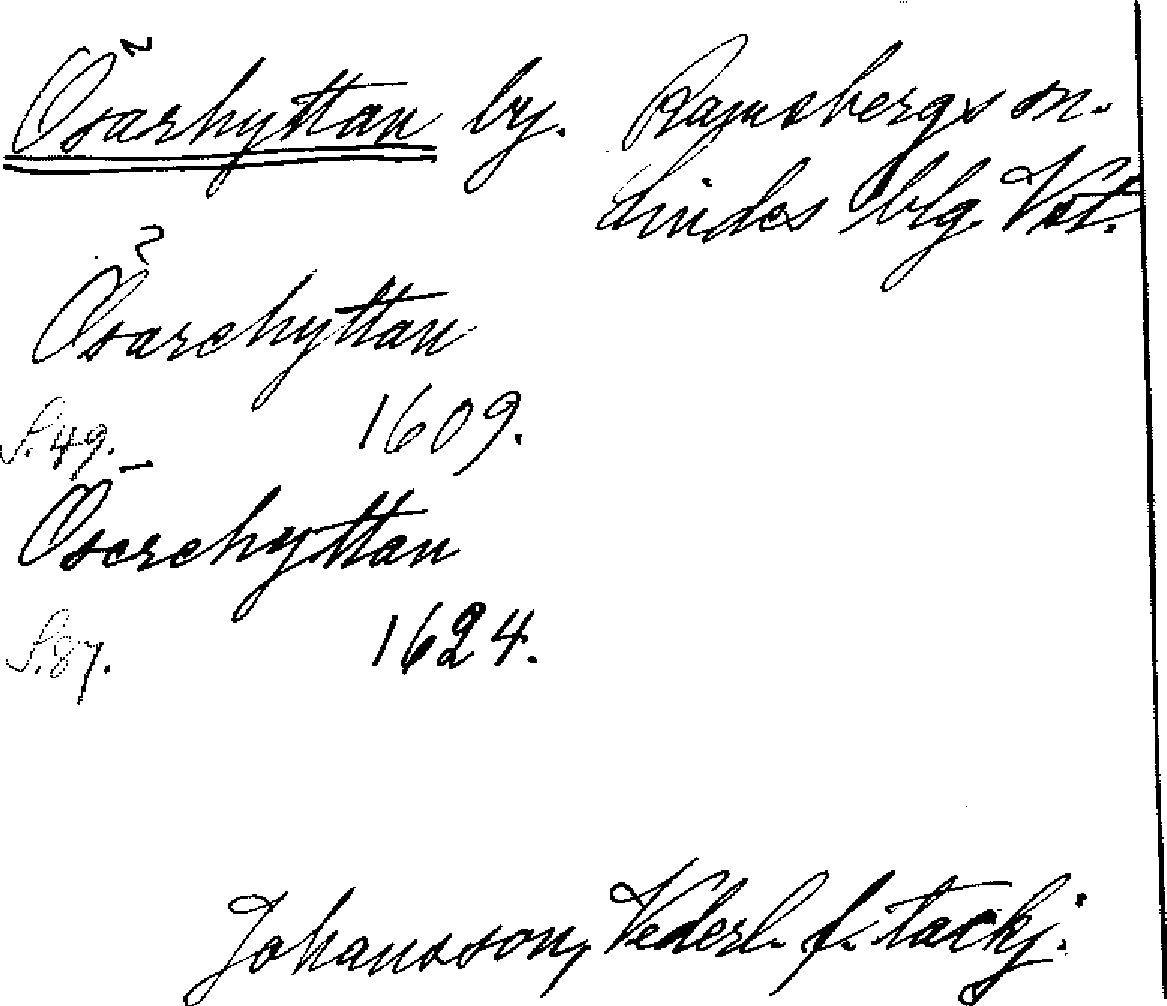 Ösarhyttan by. Ramsbergs sn.
Lindes blg. Vstm.
Ösarehyttan
S. 49. 1609.
Öserehyttan
S. 87. 1624.
Johansson, Vederl. f. tackj.